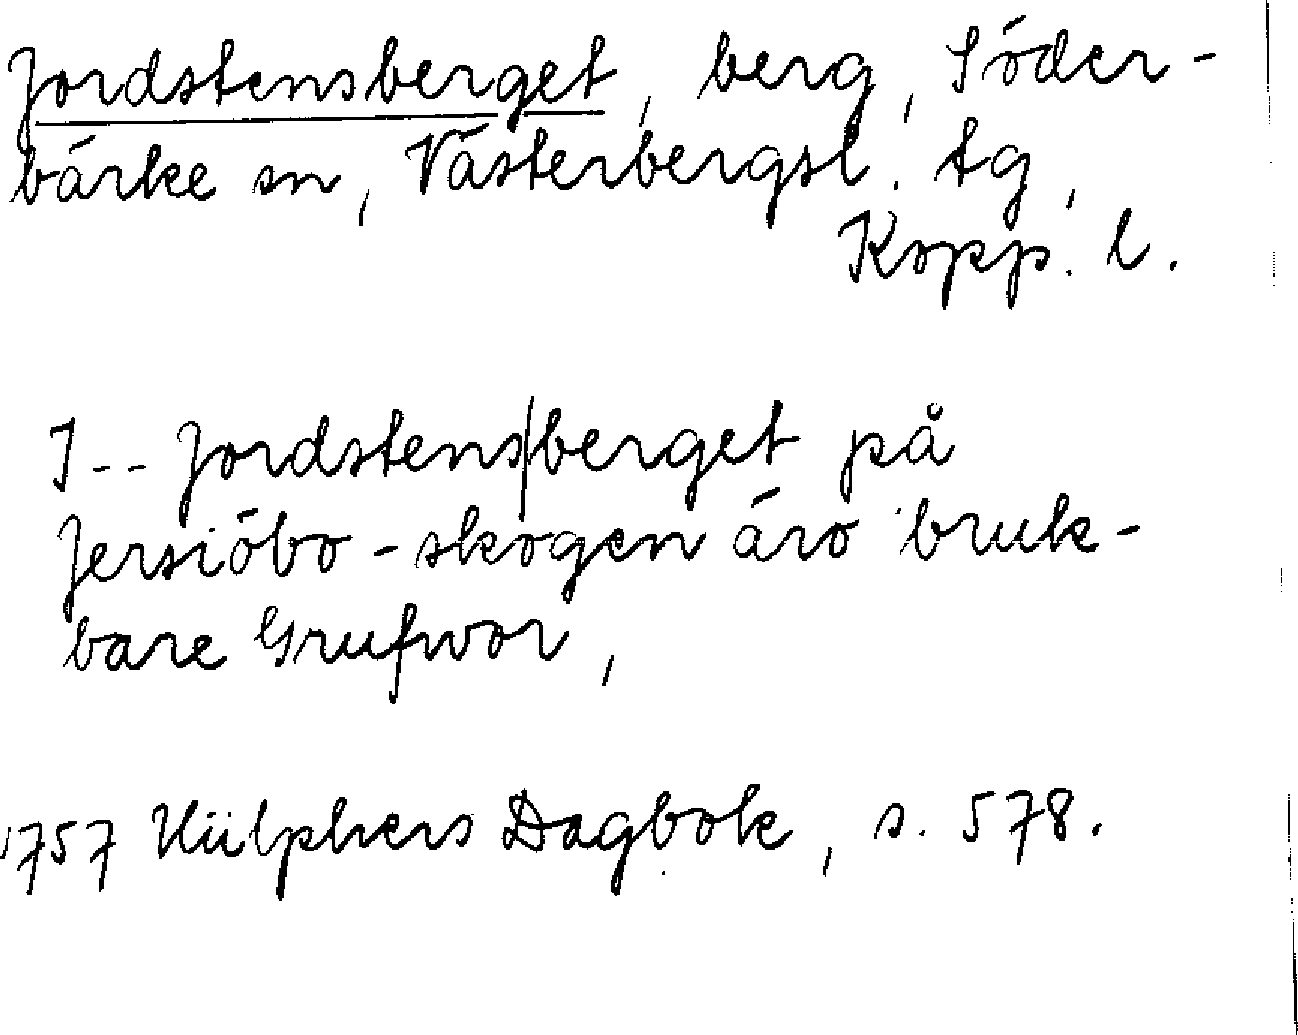 Jordstensberget, berg, Söder-
bärke sn, Västerbergsl. tg,
Kopp. l.
I -- Jordstens|berget på
Jersiöbo-skogen äro bruk-
bare Grufwor,
1757 Hülphers Dagbok, s. 578.